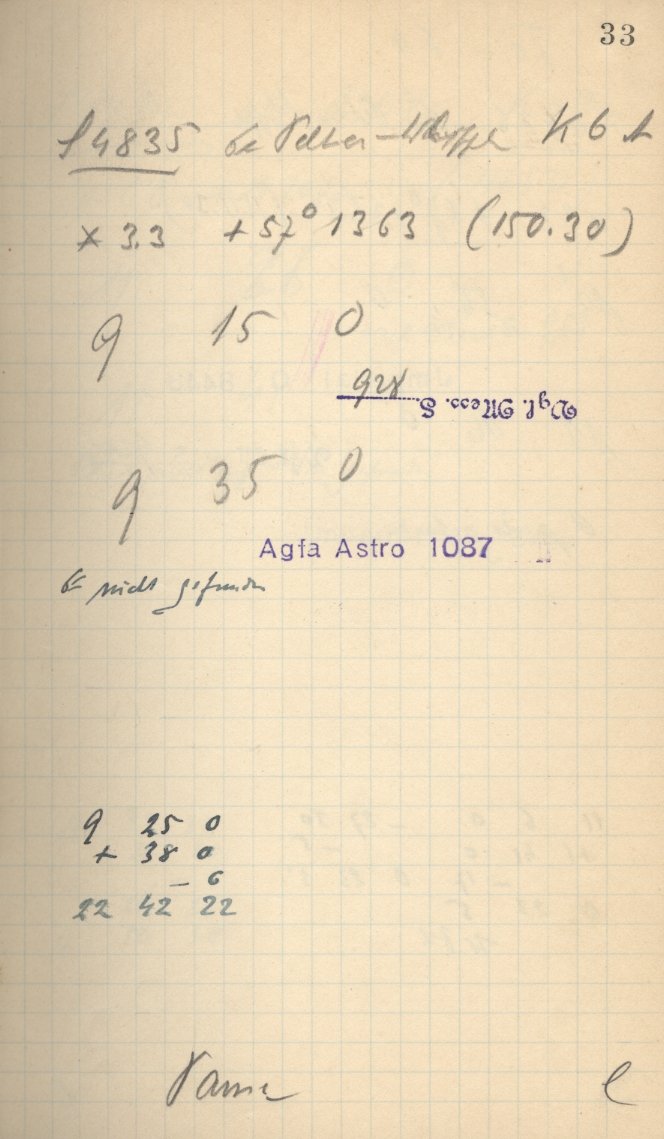 33
S4835 Peltier-Whipple K 6 A
x 3.3 +57° 1363 (150.30)
9 15 0
928
Vgl. Mess. S.
9 35 0
Agfa Astro 1087
nicht gefunden
9 25 0
+ 38 0
- 6
22 42 22